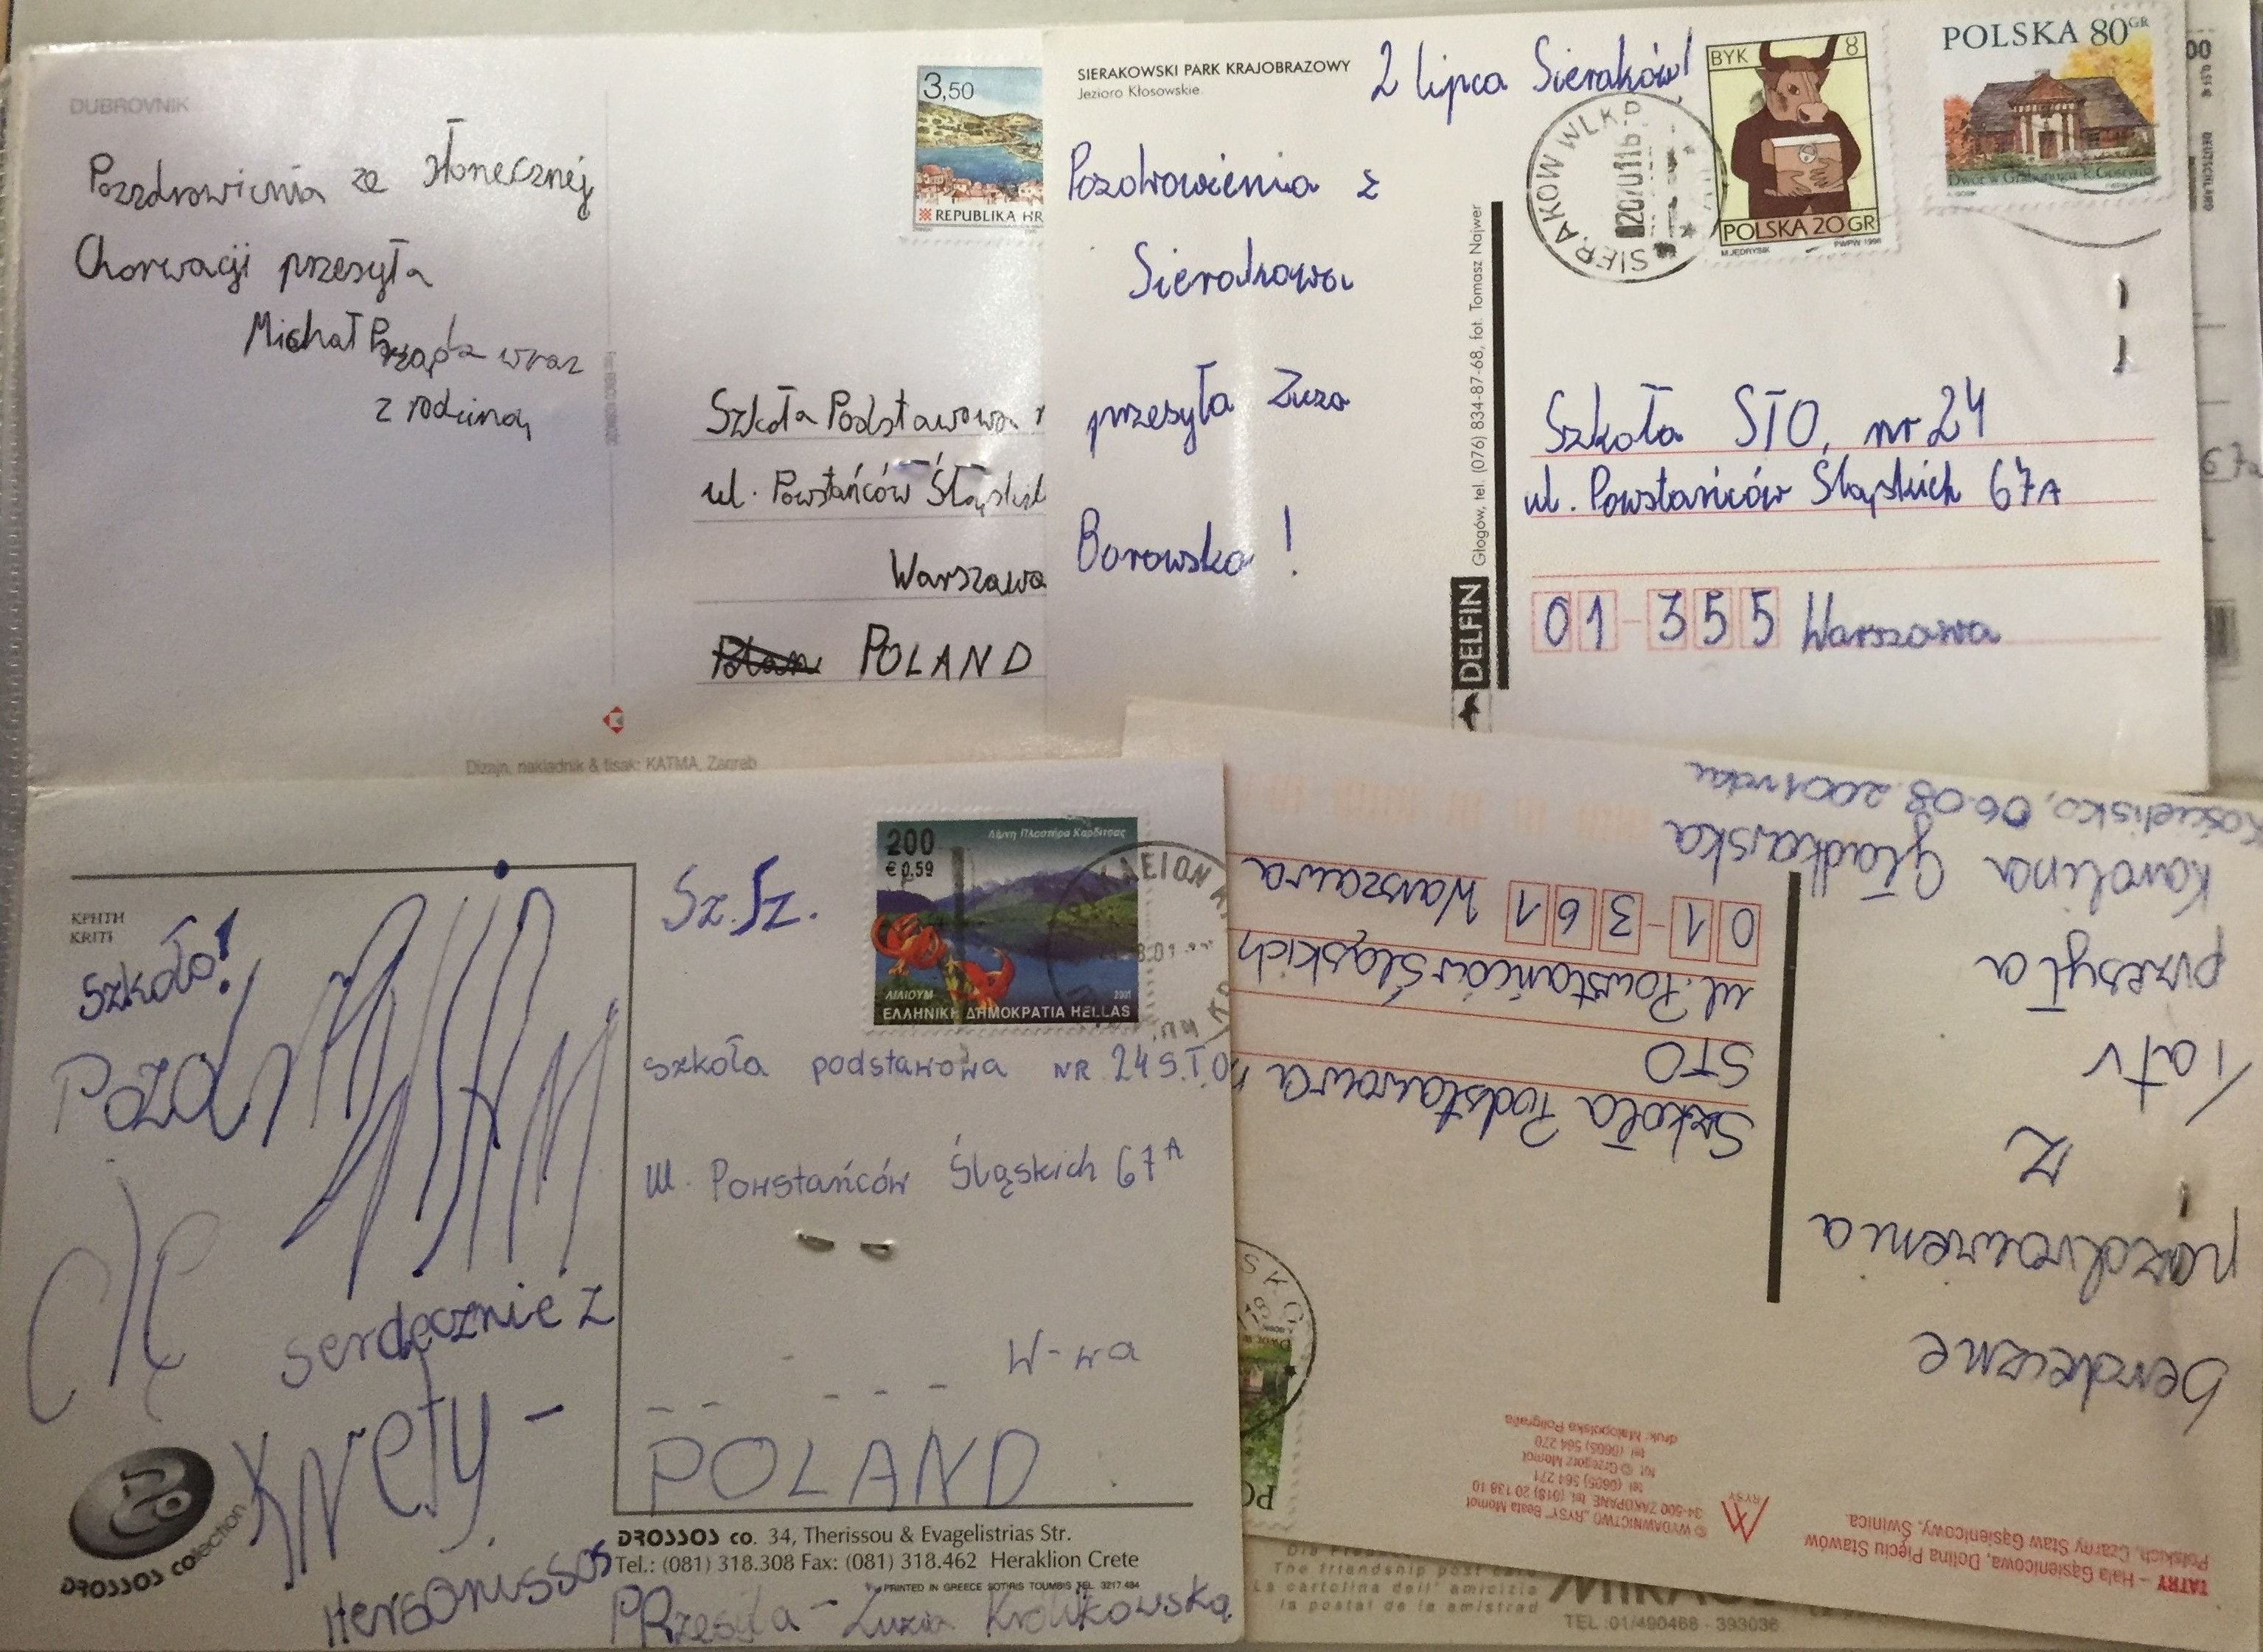 DUBROVNIK
Pozzdrowienia ze słonecznej
Chorwacji przesyła
Michał wraz
z rodziną
3,50
REPUBLIKA HR
Szkoła Podstawowa
ul. Powstańców
Warszawa
POLAND
Dizajn, nakladnik & tisak: KATMA, Zagreb
SIERAKOWSKI PARK KRAJOBRAZOWY
Jezioro Kłosowskie
2 lipca Sieraków
Pozdrowienia z
Sierakowa
przesyła Zuza
Borowska!
SIERAKOW WLKP
BYK 8
POLSKA 20 GR
M.JĘDRYSIK PWPW 1996
POLSKA 80 GR
Głogów, tel. (076) 834-87-68, fot. Tomasz Najwer
DELFIN
Szkoła STO, nr 24
ul. Powstańców Śląskich 67A
01-355 Warszawa
DEUTSCHLAND
67a
ΚΡΗΤΗ
KRITI
Szkoło!
Pozd
Cię
serdecznie z
Krety-
Hersonissos
PRzesyła - Zuzia Królikowska
Sz.Sz.
200
€ 0,59
Λίμνη Πλαστήρα Καρδίτσας
ΛΙΛΙΟΥΜ 2001
ΕΛΛΗΝΙΚΗ ΔΗΜΟΚΡΑΤΙΑ HELLAS
szkoła podstawowa NR 24 S.T.O
ul. Powstańców Śląskich 67A
W-wa
POLAND
DROSSOS collection
DROSSOS co. 34, Therissou & Evagelistrias Str.
Tel.: (081) 318.308 Fax: (081) 318.462 Heraklion Crete
PRINTED IN GREECE SOTIRIS TOUMBIS TEL. 3217.484
TATRY – Hala Gąsienicowa, Dolina Pięciu Stawów
Polskich, Czarny Staw Gąsienicowy, Świnica.
RYSY
© WYDAWNICTWO „RYSY” Beata Momot
34-500 ZAKOPANE, tel. (018) 20 138 10
tel. (0605) 564 271
fot. © Grzegorz Momot
tel. (0605) 564 270
druk: Małopolska Poligrafia
Serdeczne
pozdrowienia
z
Tatr
przesyła
Karolina Gładkowska
Kościelisko, 06.08.2001 roku.
Szkoła Podstawowa
STO
ul. Powstańców Śląskich
01-361 Warszawa
The friendship post
La cartolina dell' amicizia
la postal de la amistrad
TEL.:01/490468 - 393036